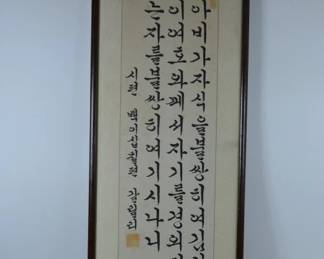 아비가자식을불쌍히여김
이여호와께서자기를경외
는자를불쌍히여기시나니
시편